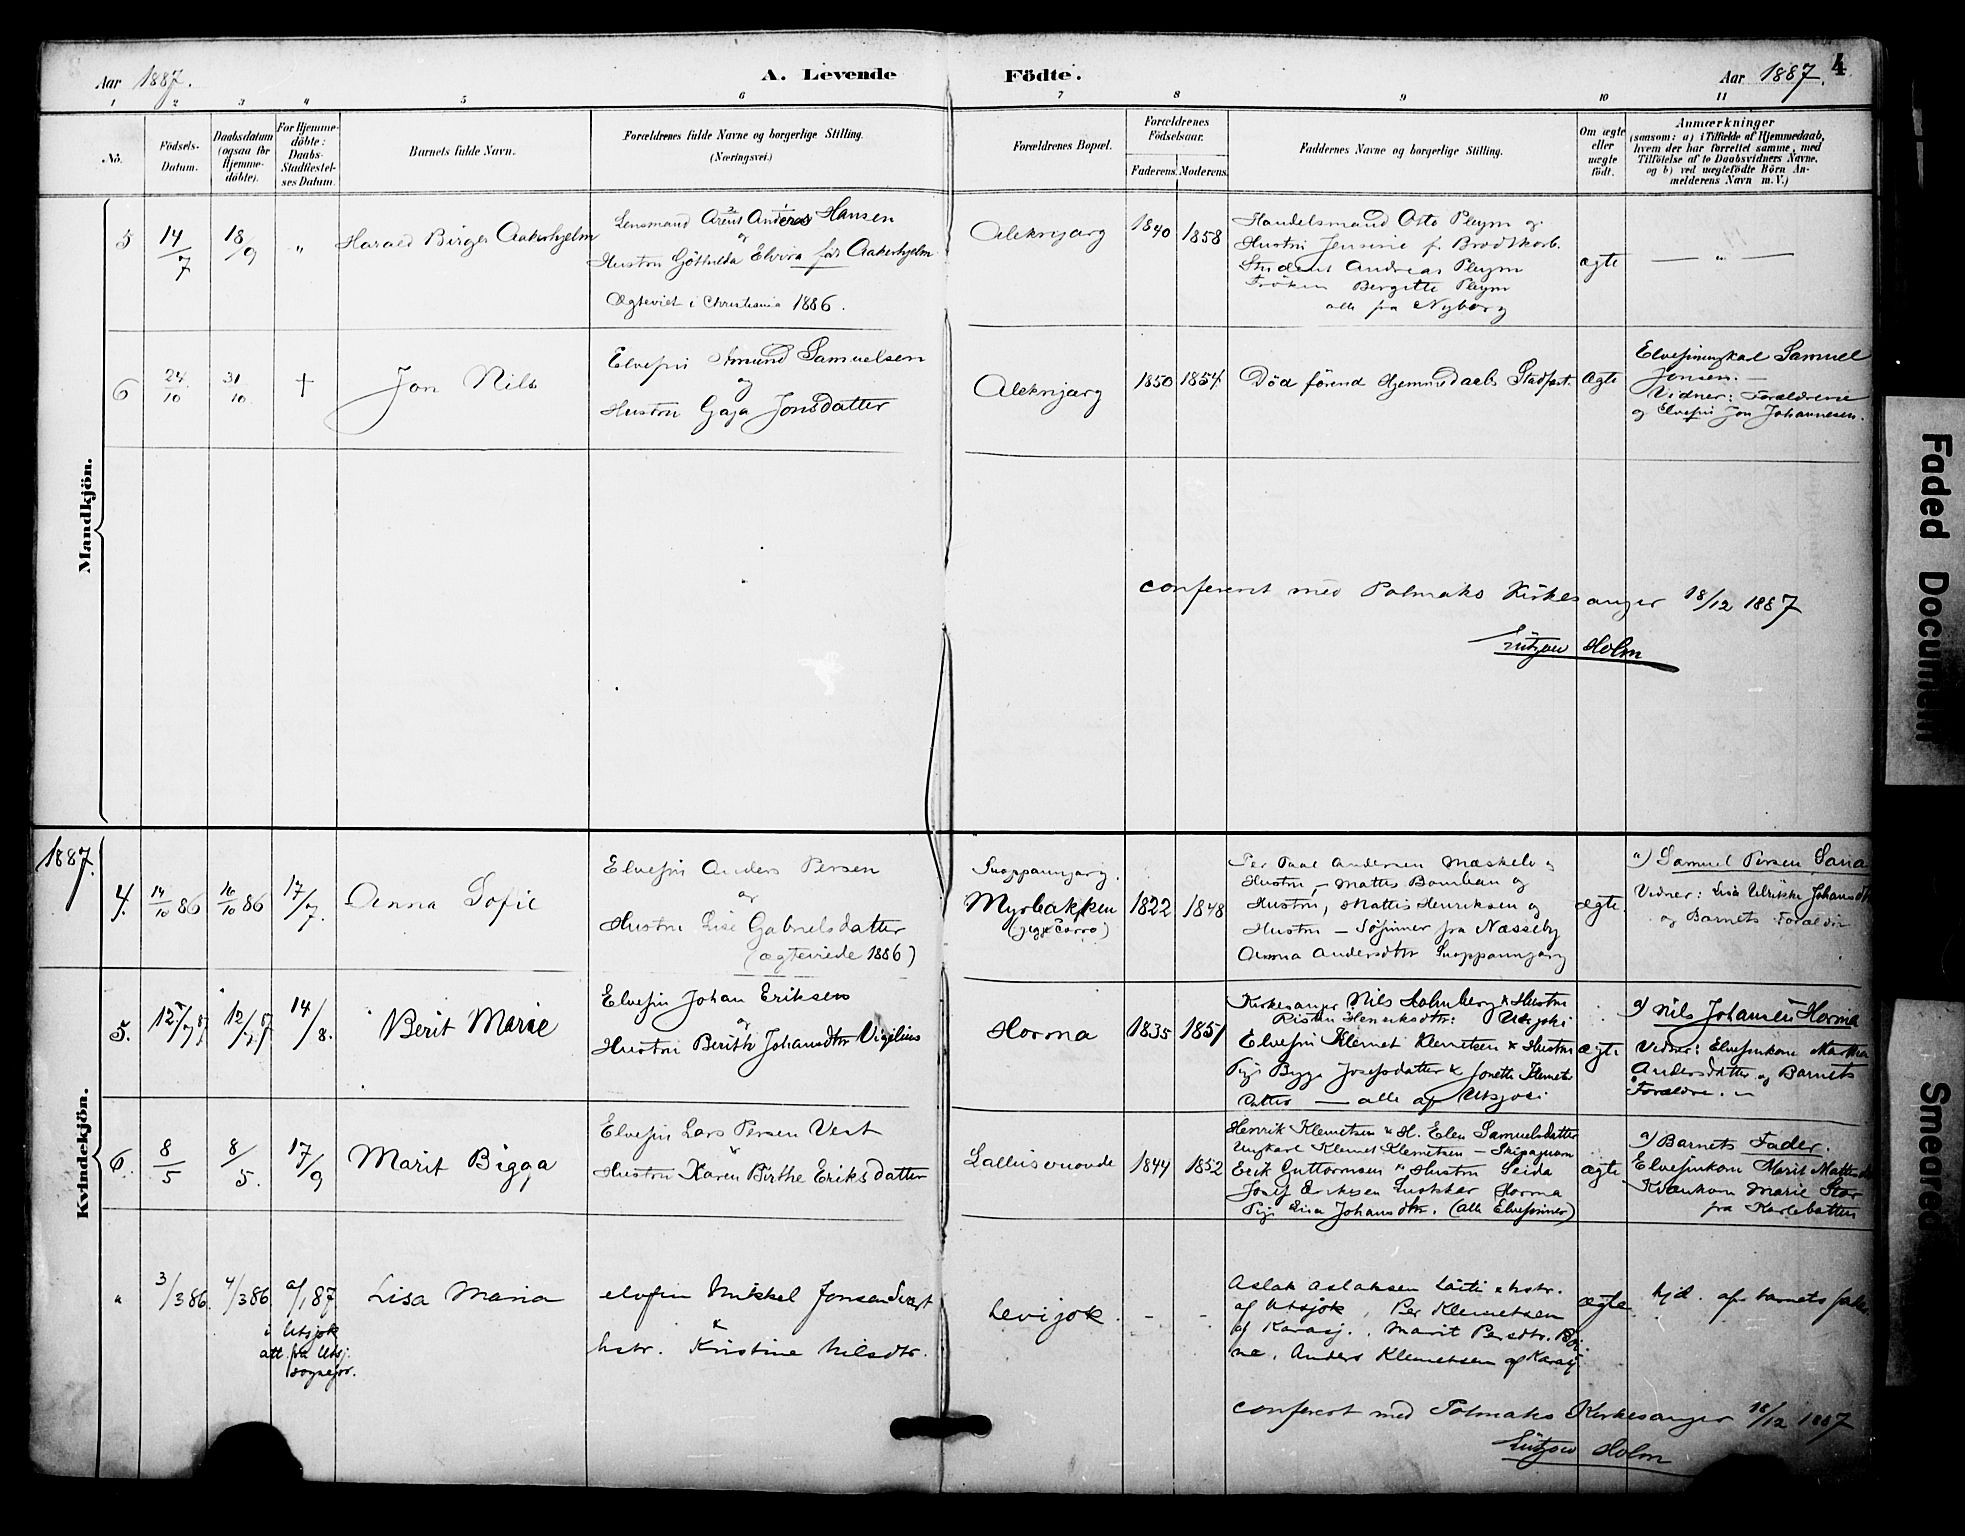 4
Aar 1887.
A. Levende
Födte.
Aar 1887.
1 2 3 4 5 6 7 8 9 10 11
No.
Födsels-
Datum.
Daabsdatum
(ogsaa for
Hjemme-
döbte).
For Hjemme-
döbte:
Daabs-
Stadfæstel-
ses Datum.
Barnets fulde Navn.
Forældrenes fulde Navne og borgerlige Stilling.
(Næringsvei.)
Forældrenes Bopæl.
Forældrenes
Födselsaar.
Faderens.
Moderens.
Faddernes Navne og borgerlige Stilling.
Om ægte
eller
uægte
födt.
Anmærkninger
(saasom: a) i Tilfælde af Hjemmedaab,
hvem der har forrettet samme, med
Tilföielse af to Daabsvidners Navne,
og b) ved uægtefödte Börn An-
melderens Navn m. V.)
Mandkjön.
5
14/7
18/9
"
Harald Birger Aakerhjelm
Lensmand Arent Anders Hansen
og
Hustru Göthilda Elvira föd Aakerhjelm
Ægteviet i Christiania 1886.
Aleknjarg
1840
1858
Handelsmand Otto Pleym og
Hustru Jensine f. Brodtkorb.
Student Andreas Pleym
Fröken Bergitte Pleym
alle fra Nyborg
ægte
— " —
6
24/10
31/10
†
Jon Nils
Elvefin Amund Samuelsen
og
Hustru Gaja Jonsdatter
Aleknjarg
1850
1854
Död förend Hjemmedaabs Stadfæst.
Ægte
Elvefinungkarl Samuel
Jonsen. —
Vidner: Forældrene
og Elvefin Jon Johannesen.
conferert med Polmaks Kirkesanger 18/12 1887
Lützow Holm
Kvindekjön.
1887.
4.
14/10 86
16/10 86
17/7.
Anna Sofie
Elvefin Anders Persen
og
Hustru Lise Gabrielsdatter
(ægteviede 1886)
Suoppannjarg.
Myrbakken
1822
1848
Per Paul Andersen Mæskelv og
Hustru, – Mattis Bomban og
Hustru, Mattis Henriksen og
Hustru – Söfinner fra Næsseby
Anna Andersdtr Suoppannjarg
ægte.
a) Samuel Persen
Vidner: Lisa Ulrikke Johansdtr
og Barnets Forældre
5.
12/7 87
12/7 87
14/8.
Berit Marie
Elvefin Johan Eriksen
og
Hustru Berith Johansdtr Vigelius
Horma
1835
1851
Kirkesanger Nils Holmberg & Hustru
Ristin Henriksdtr: Utsjoki
Elvefin Klemet Klemetsen & Hustru
Pige Bigga Josefsdatter & Jonetta Klemets
datter — alle af Utsjoki
ægte
a) Nils Johansen Horma
Vidner: Elvefinkone Martha
Andersdatter og Barnets
Forældre.
6.
8/5
8/5.
17/9
Marit Bigga
Elvefin Lars Persen Vest
&
Hustru Karen Birthe Eriksdatter
1844
1852
Henrik Klemetsen & H. Elen Samuelsdatter
Ungkarl Klemet Klemetsen –
Erik Guttormsen & Hustru Seida
Josef Eriksen Horma
Pige Lisa Johansdtr. (alle Elvefinner)
ægte
a) Barnets Fader.
Elvefinkone Marit Mattisdtr
Kvænkone Marie
fra Karlebotten
"
3/3 86.
4/3 86
i Utsjok
att. fra Utsj.
sognepr.
Lisa Maria
elvefin Mikkel Jonsen
&
hstr. Kristine Nilsdtr.
Levijok.
–
–
Aslak Aslaksen Laiti & hstr.
af Utsjok, Per Klemetsen
af Karasj., Marit Persdtr.
Anders Klemetsen af Karasj.
ægte
hjd. af barnets fader
conferert med Polmaks Kirkesanger 18/12 1887
Lützow Holm
Faded Document
Smeared